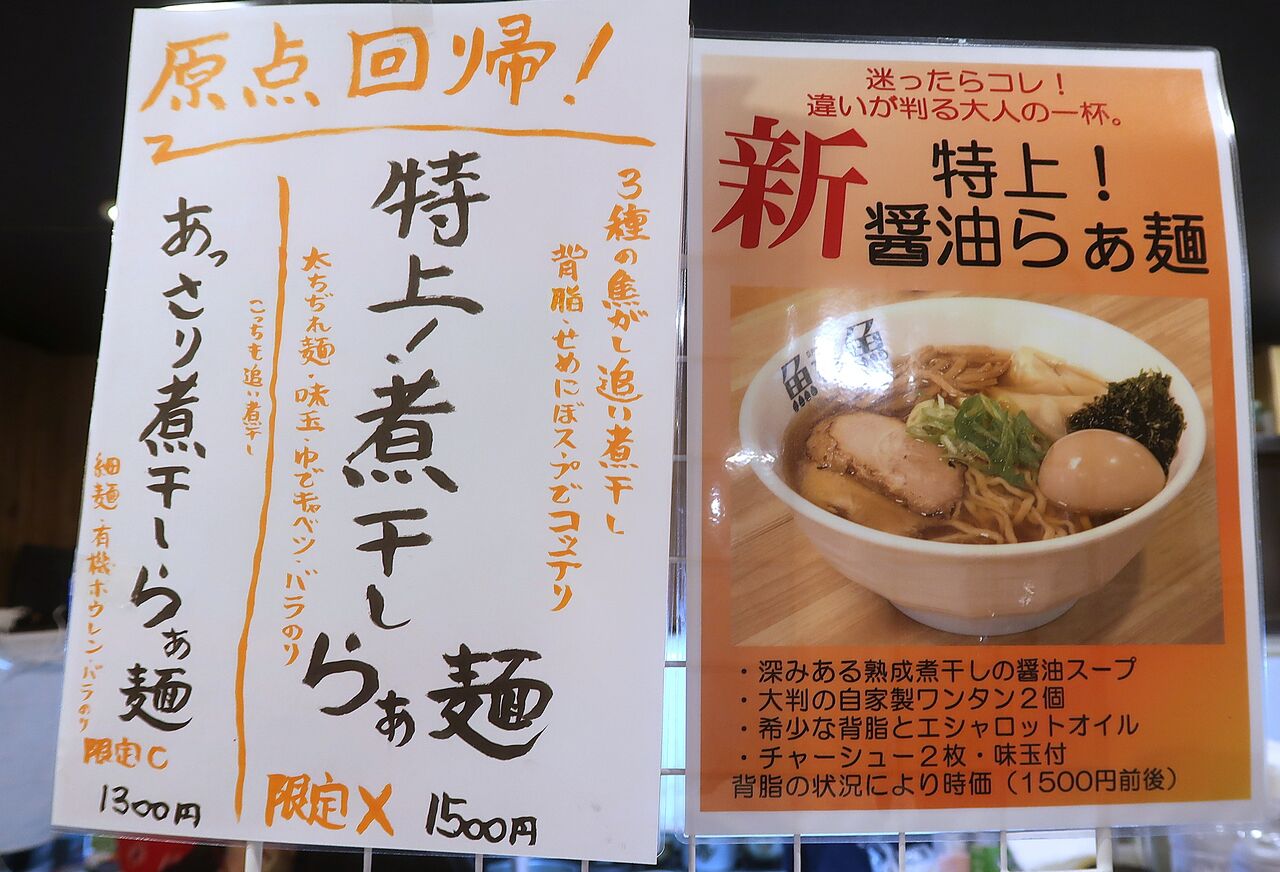 原点回帰!
3種の焦がし追い煮干し
背脂・せめにぼスープでコッテリ
特上!煮干しらぁ麺
太ちぢれ麺・味玉・ゆでキャベツ・バラのり
限定X
1500円
あっさり煮干しらぁ麺
こっちも追い煮干し
細麺・有機ホウレン・バラのり
限定C
1300円
迷ったらコレ!
違いが判る大人の一杯。
新
特上!
醤油らぁ麺
・深みある熟成煮干しの醤油スープ
・大判の自家製ワンタン2個
・希少な背脂とエシャロットオイル
・チャーシュー2枚・味玉付
背脂の状況により時価(1500円前後)